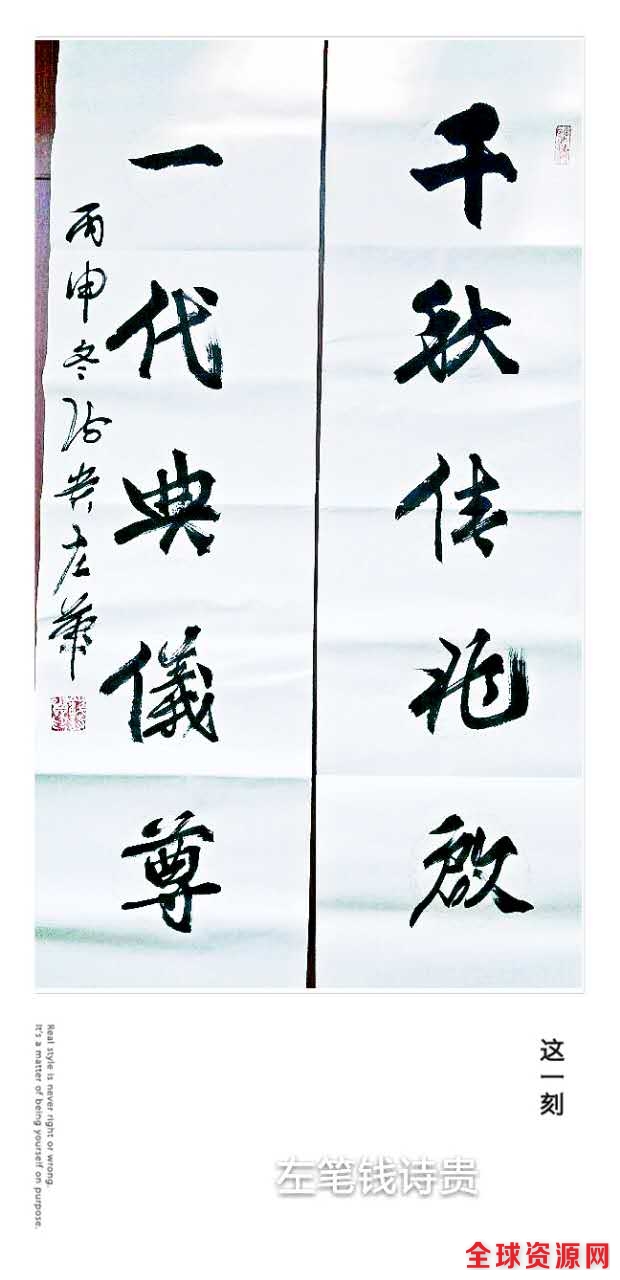 千秋佳兆啟
一代典儀尊
丙申冬诗贵左筆
这一刻
Real style is never right or wrong.
It's a matter of being yourself on purpose.
左笔钱诗贵
全球资源网